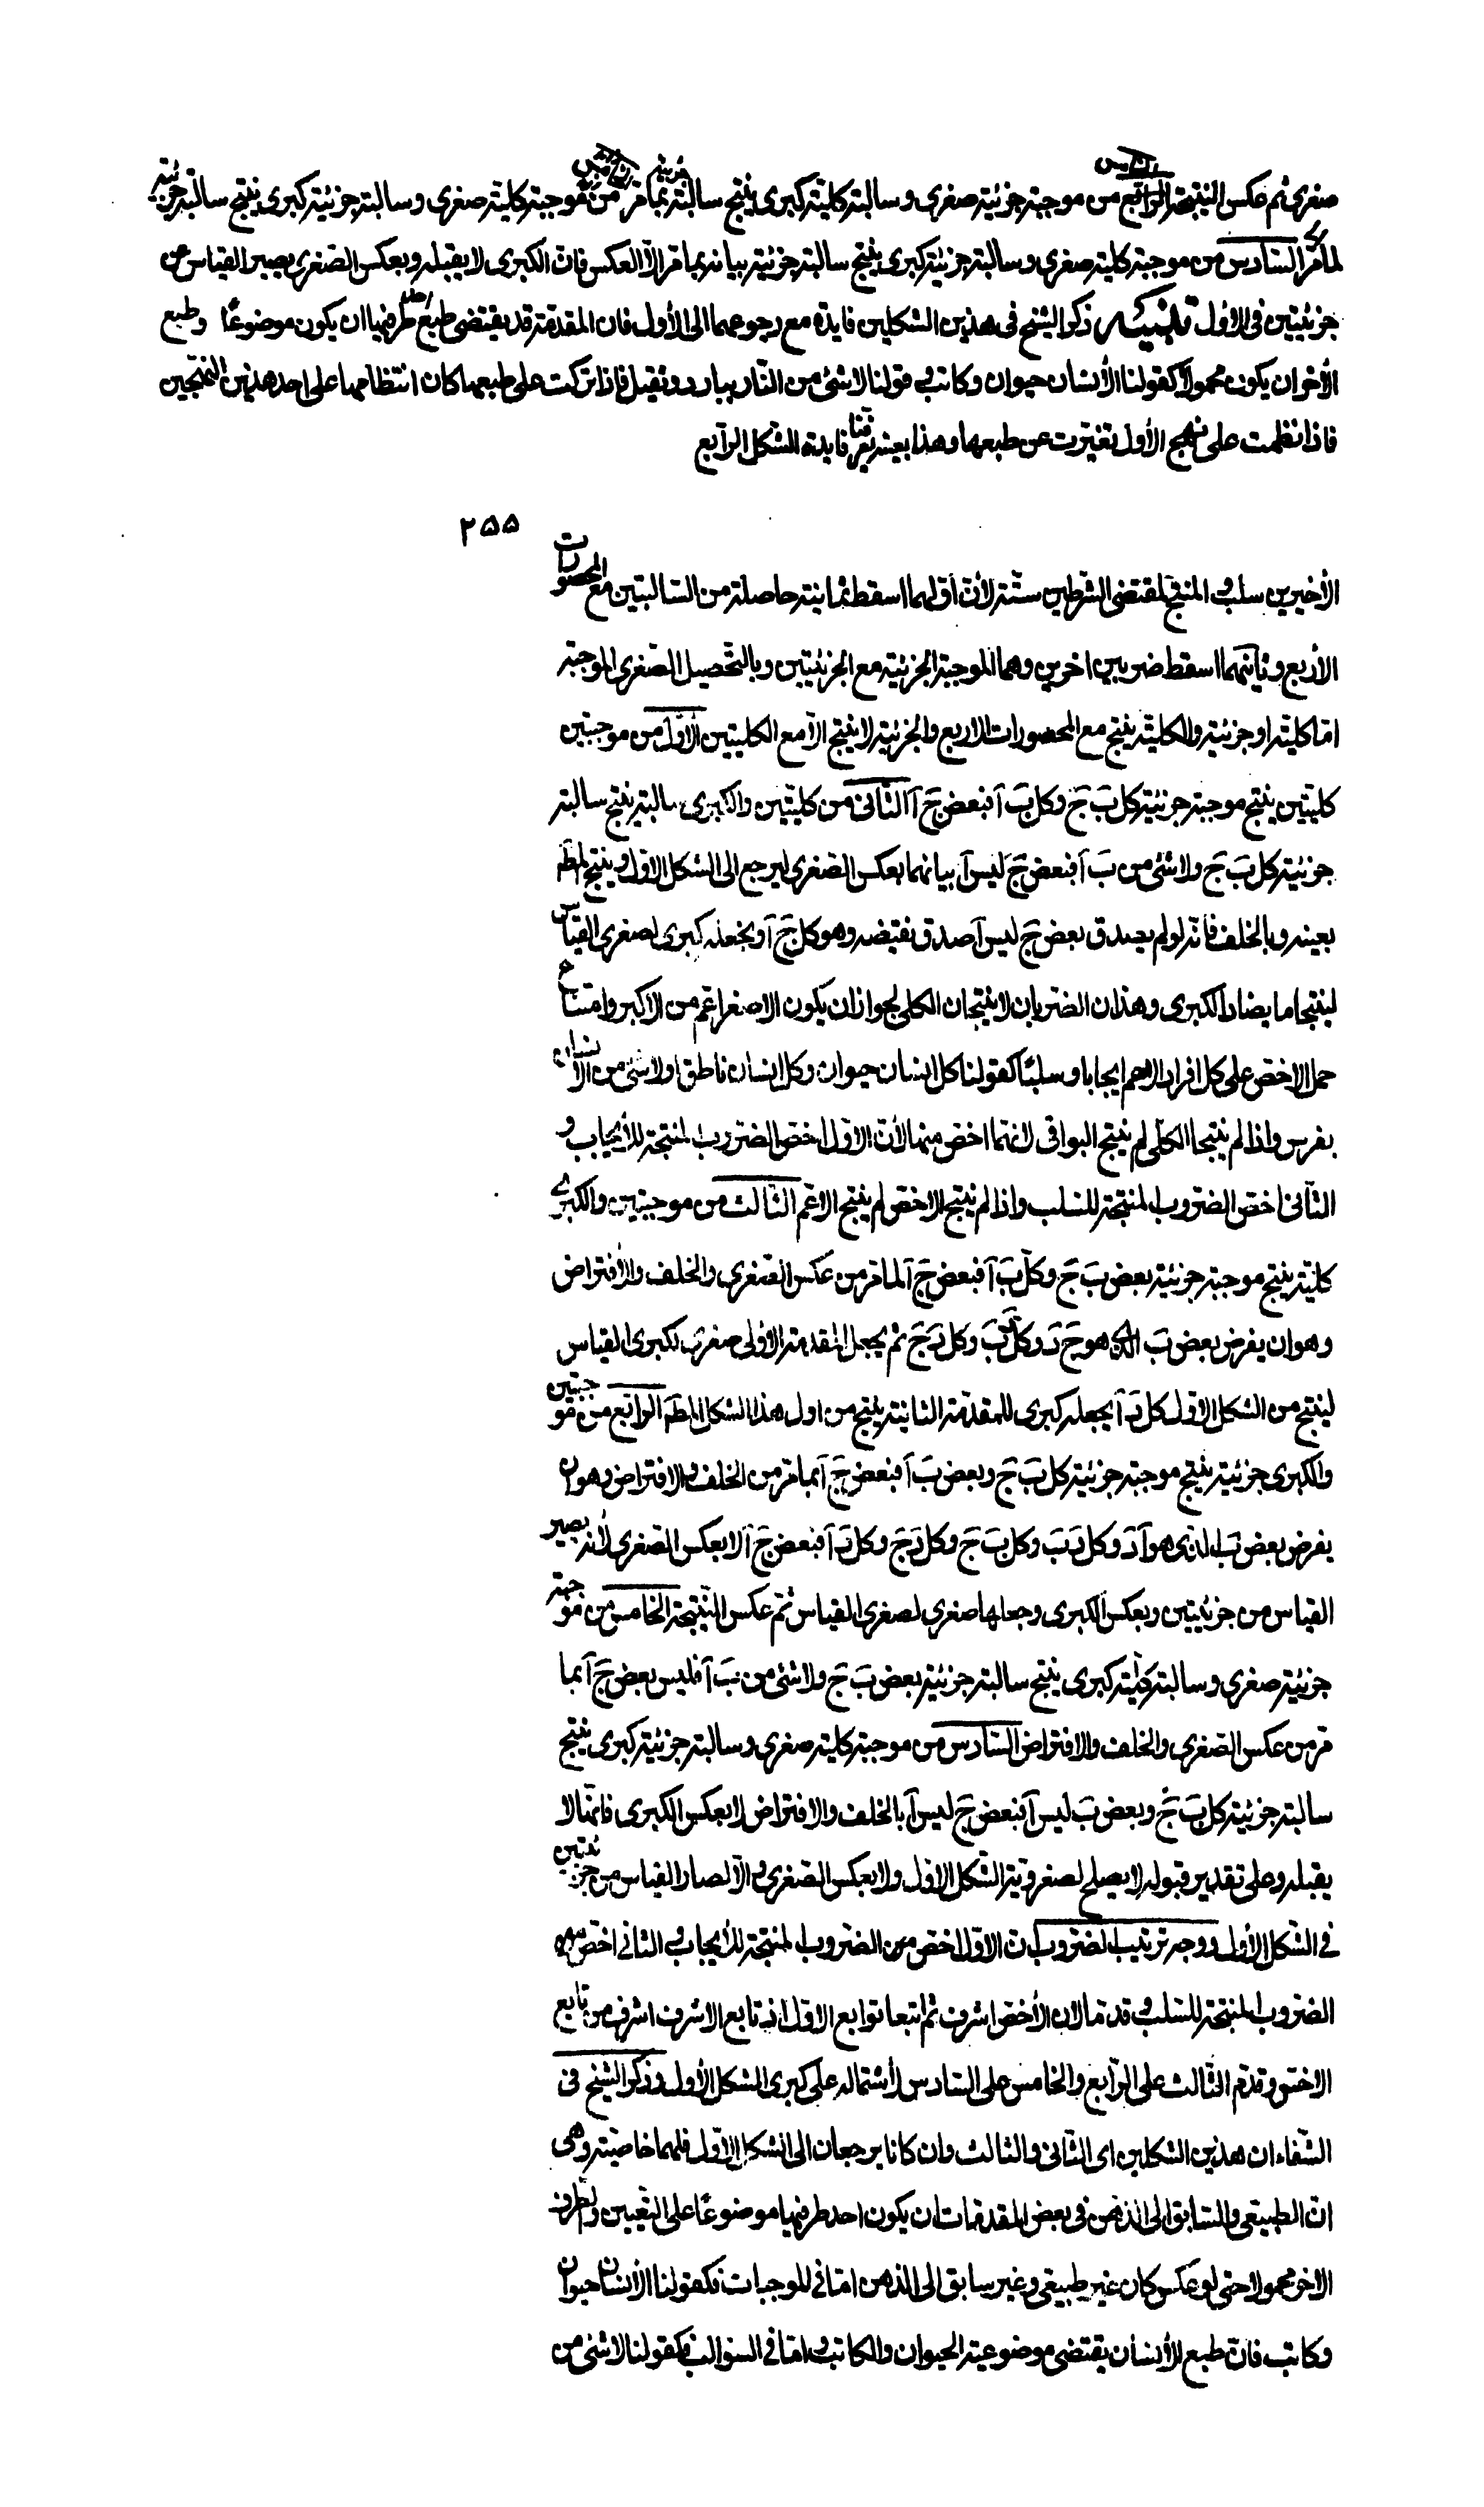 صغرى ثم عكس النتيجة الرابع من موجبة جزئية صغرى وسالبة كلية كبرى ينتج سالبة جزئية بما مر من موجبة كلية صغرى وسالبة جزئية كبرى ينتج سالبة جزئية
لما مر السادس من موجبة كلية صغرى وسالبة جزئية كبرى ينتج سالبة جزئية بيانه بما مر الا العكس فان الكبرى لا يقبله وبعكس الصغرى يصير القياس من
جزئيتين في الاول تنبيه ذكر الشيخ في هذين الشكلين فايدة مع رجوعهما الى الأول فان المقدمة قد يقتضى طبع احد طرفيها ان يكون موضوعًا وطبع
الأخر ان يكون محمولا كقولنا الأنسان حيوان وكاتب وقولنا لا شئ من النار ببارد وثقيل فاذا تركت على طبعها كان انتظامها على احد هذين النهجين
فاذا نظمت على نهج الأول تغيرت عن طبعها وهذا بعينه يعرفنا فايدة الشكل الرابع
٢٥٥
الأخيرين سلب والمنتج بمقتضى الشرطين ستة لأن أولهما اسقط ثمانية حاصلة من السالبتين مع المحصورات
الأربع وثانيهما اسقط ضربين اخرين وهما الموجبة الجزئية مع الجزئيتين وبالتحصيل الصغرى الموجبة
اما كلية او جزئية والكلية ينتج مع المحصورات الاربع والجزئية لا ينتج الا مع الكليتين الأول من موجبتين
كليتين ينتج موجبة جزئية كل بَ جَ وكل بَ آ فبعض جَ آ الثانى من كليتين والكبرى سالبة ينتج سالبة
جزئية كل بَ جَ ولا شئ من بَ آ فبعض جَ ليس آ بيانهما بعكس الصغرى ليرجع الى الشكل الاول وينتج المط
بعينه وبالخلف فانه لو لم يصدق بعض جَ ليس آ صدق نقيضه وهو كل جَ آ ويجعله كبرى لصغرى القياس
لينتجا ما يضاد الكبرى وهذان الضربان لا ينتجان الكلى لجواز ان يكون الاصغر اعم من الاكبر وامتناع
حمل الاخص على كل افراد الاعم ايجابا وسلبًا كقولنا كل انسان حيوان وكل انسان ناطق او لا شئ من الأنسان
بفرس واذا لم ينتجا الكلى لم ينتج البواقى لانهما اخص منها لأن الاول اخص الضروب المنتجة للأيجاب و
الثانى اخص الضروب المنتجة للسلب واذا لم ينتج الاخص لم ينتج الاعم الثالث من موجبتين والكبرى
كلية ينتج موجبة جزئية بعض بَ جَ وكل بَ آ فبعض جَ آ لما مر من عكس الصغرى والخلف والأفتراض
وهو ان يفرض بعض بَ الذى هو جَ دَ وكل دَ بَ وكل دَ جَ ثم يجعل المقدمة الاولى صغرى لكبرى القياس
لينتج من الشكل الاول كل دَ آ يجعله كبرى للمقدمة الثانية ينتج من اول هذا الشكل المط الرابع من موجبتين
والكبرى جزئية ينتج موجبة جزئية كل بَ جَ وبعض بَ آ فبعض جَ آ بما مر من الخلف والافتراض وهو ان
يفرض بعض بَ الذى هو آ دَ وكل دَ بَ وكل بَ جَ وكل دَ جَ وكل دَ آ فبعض جَ آ لا بعكس الصغرى لأنه يصير
القياس من جزئيتين وبعكس الكبرى وجعلها صغرى لصغرى القياس ثم عكس النتيجة الخامس من موجبة
جزئية صغرى وسالبة كلية كبرى ينتج سالبة جزئية بعض بَ جَ ولا شئ من بَ آ فليس بعض جَ آ بما
مر من عكس الصغرى والخلف والافتراض السادس من موجبة كلية صغرى وسالبة جزئية كبرى ينتج
سالبة جزئية كل بَ جَ وبعض بَ ليس آ فبعض جَ ليس آ بالخلف والافتراض لا بعكس الكبرى فانها لا
يقبله وعلى تقدير قبوله لا يصلح لصغروية الشكل الاول ولا بعكس الصغرى والا لصار القياس من جزئيتين
فى الشكل الأول ووجه ترتيب الضروب ان الاول اخص من الضروب المنتجة للأيجاب والثانى اخص من
الضروب المنتجة للسلب وقدما لان الأخص اشرف ثم اتبعا توابع الاول اذ تابع الاشرف اشرف من تابع
الاخس وقدم الثالث على الرابع والخامس على السادس لأشتماله على كبرى الشكل الأول وذكر الشيخ فى
الشفاء ان هذين الشكلين اى الثانى والثالث وان كانا يرجعان الى الشكل الاول فلهما خاصية وهى
ان الطبيعى والسابق الى الذهن فى بعض المقدمات ان يكون احد طرفيها موضوعًا على التعيين والطرف
الاخر محمولا حتى لو عكس كان غير طبيعى وغير سابق الى الذهن اما فى الموجبات فكقولنا الأنسان حيوان
وكاتب فان طبع الأنسان يقتضى موضوعية الحيوان والكاتب واما فى السوالب فكقولنا لا شئ من